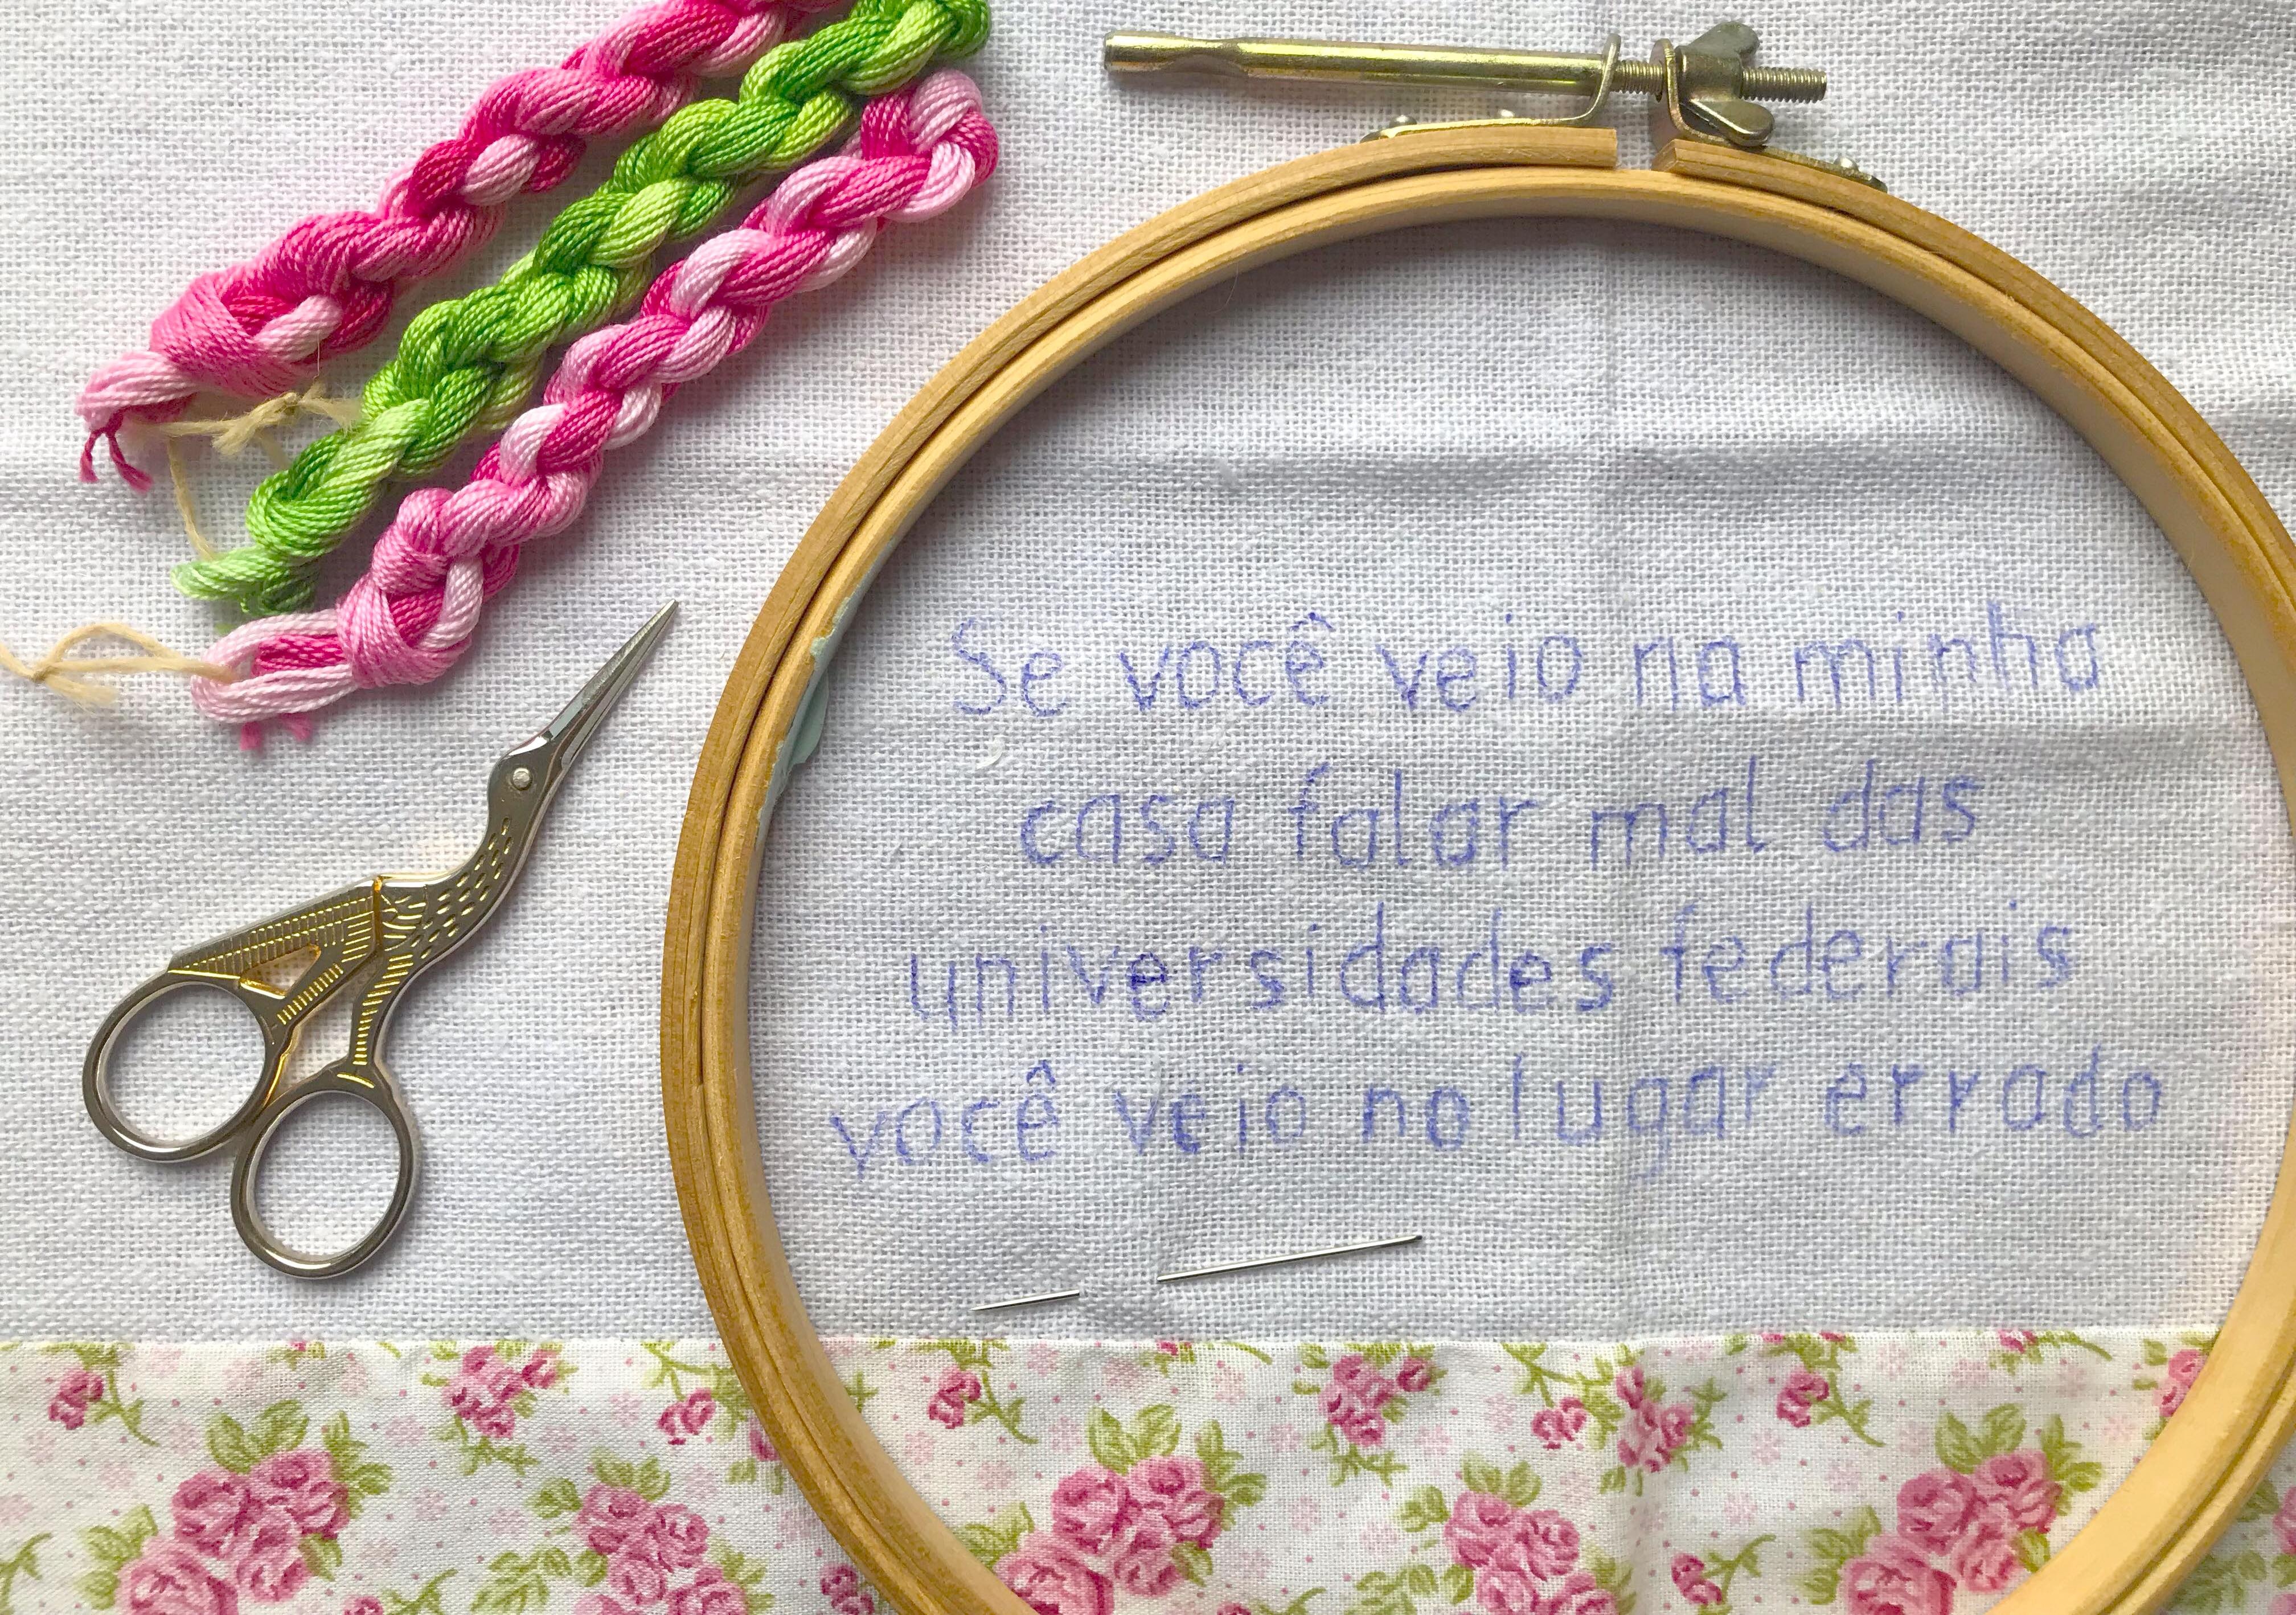 Se você veio na minha
casa falar mal das
universidades federais
você veio no lugar errado